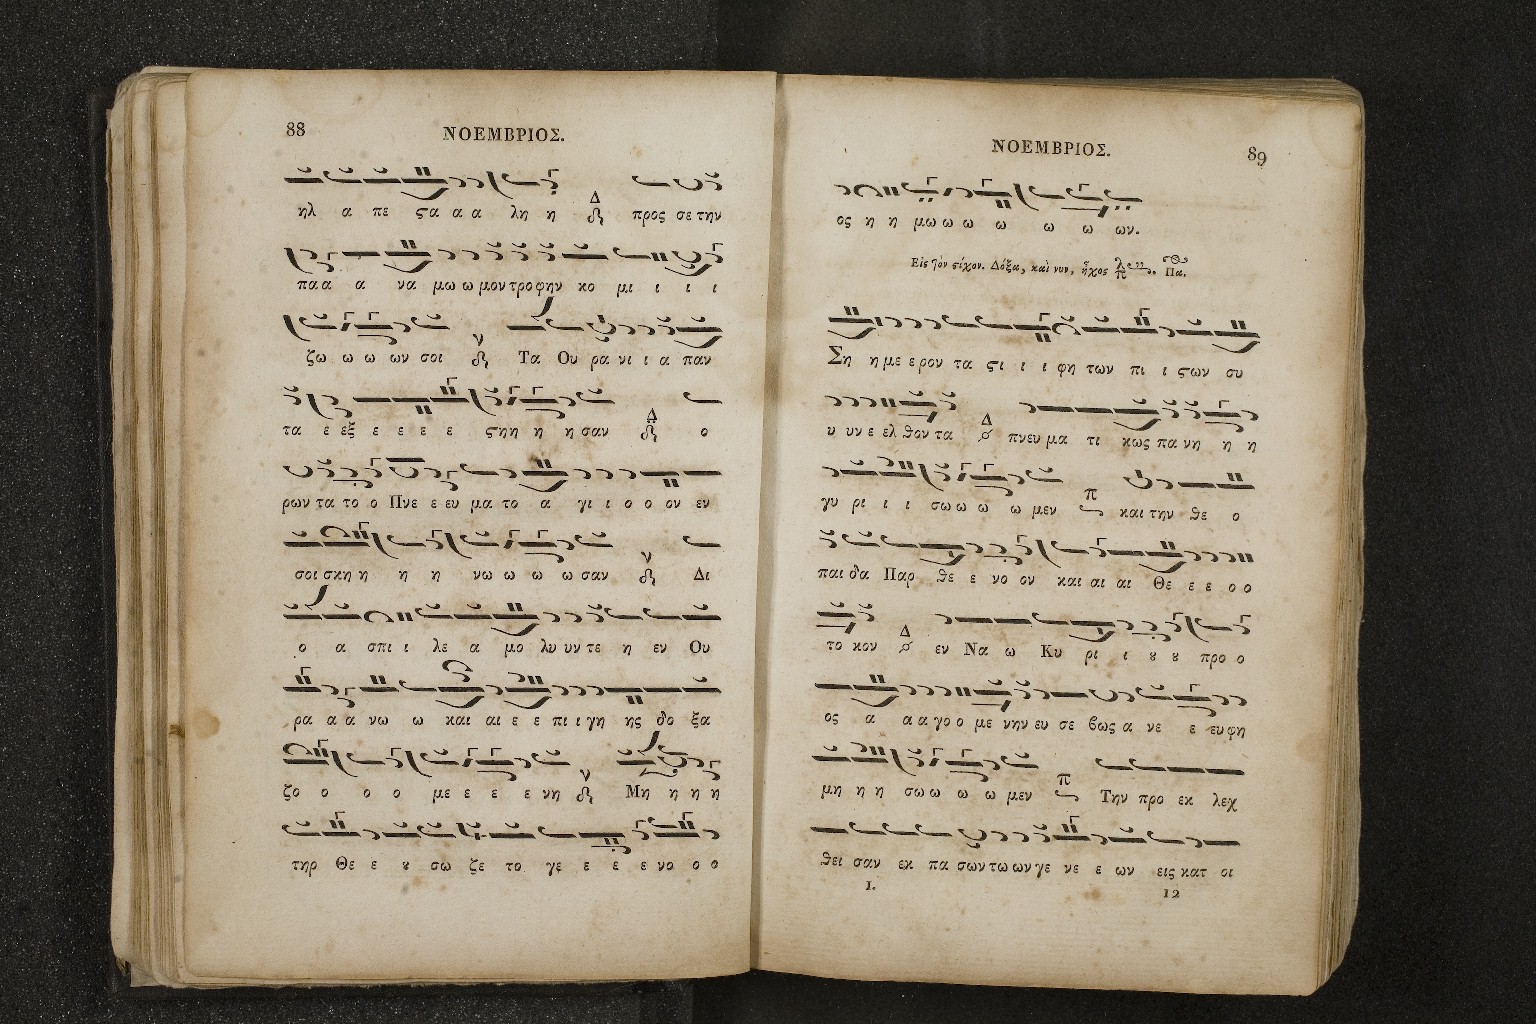 88
ΝΟΕΜΒΡΙΟΣ.
ηλ α πε ϛα α α λη η Δ προς σε την
πα α α να μω ω μον τρο φην κο μι ι ι ι
ζω ω ω ων σοι ν Τα Ου ρα νι ι α παν
τα ε εξ ε ε ε ε ϛη η η η σαν Δ ο
ρων τα το ο Πνε ε ευ μα το α γι ι ο ο ον εν
σοι σκη η η η νω ω ω ω σαν ν Δι
ο α σπι ι λε α μο λυ υν τε η εν Ου
ρα α α νω ω και αι ε ε πι ι γη ης δο ξα
ζο ο ο ο με ε ε ε νη ν Μη η η η
τηρ Θε ε ȣ σω ζε το γε ε ε ε νο ο ο
ΝΟΕΜΒΡΙΟΣ.
89
ος η η μω ω ω ω ω ω ων.
Εἰς τὸν ϛίχον. Δόξα, καὶ νυν, ἦχος λ π Πα.
Ση η με ε ρον τα ϛι ι ι φη των πι ι ϛων συ
υ υν ε ελ θον τα Δ πνευ μα τι κως πα νη η η
γυ ρι ι ι σω ω ω ω μεν π και την θε ο
παι δα Παρ θε ε νο ον και αι αι Θε ε ε ο ο
το κον Δ εν Να ω Κυ ρι ι ȣ ȣ προ ο
ος α α α γο ο με νην ευ σε βως α νε ε ευ φη
μη η η σω ω ω ω μεν π Την προ εκ λεχ
θει σαν εκ πα σων τω ων γε νε ε ων εις κατ οι
I. 12